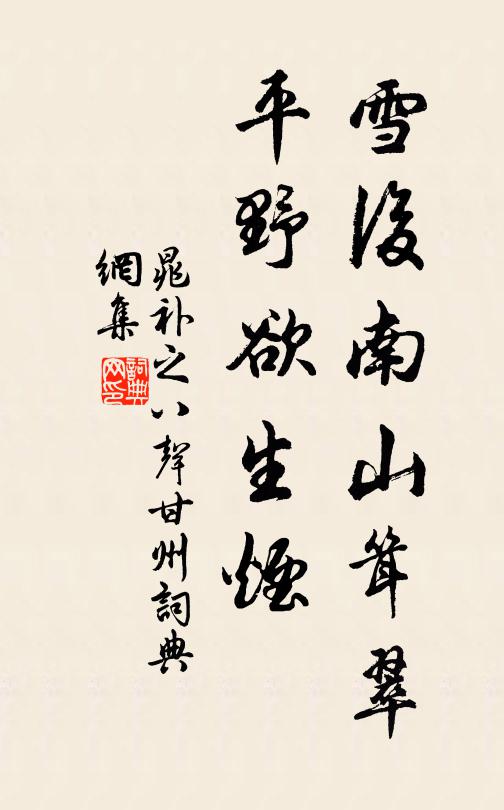 雪後南山聳翠
平野欲生煙
晁補之八聲甘州詞典
網集
詞典
网印